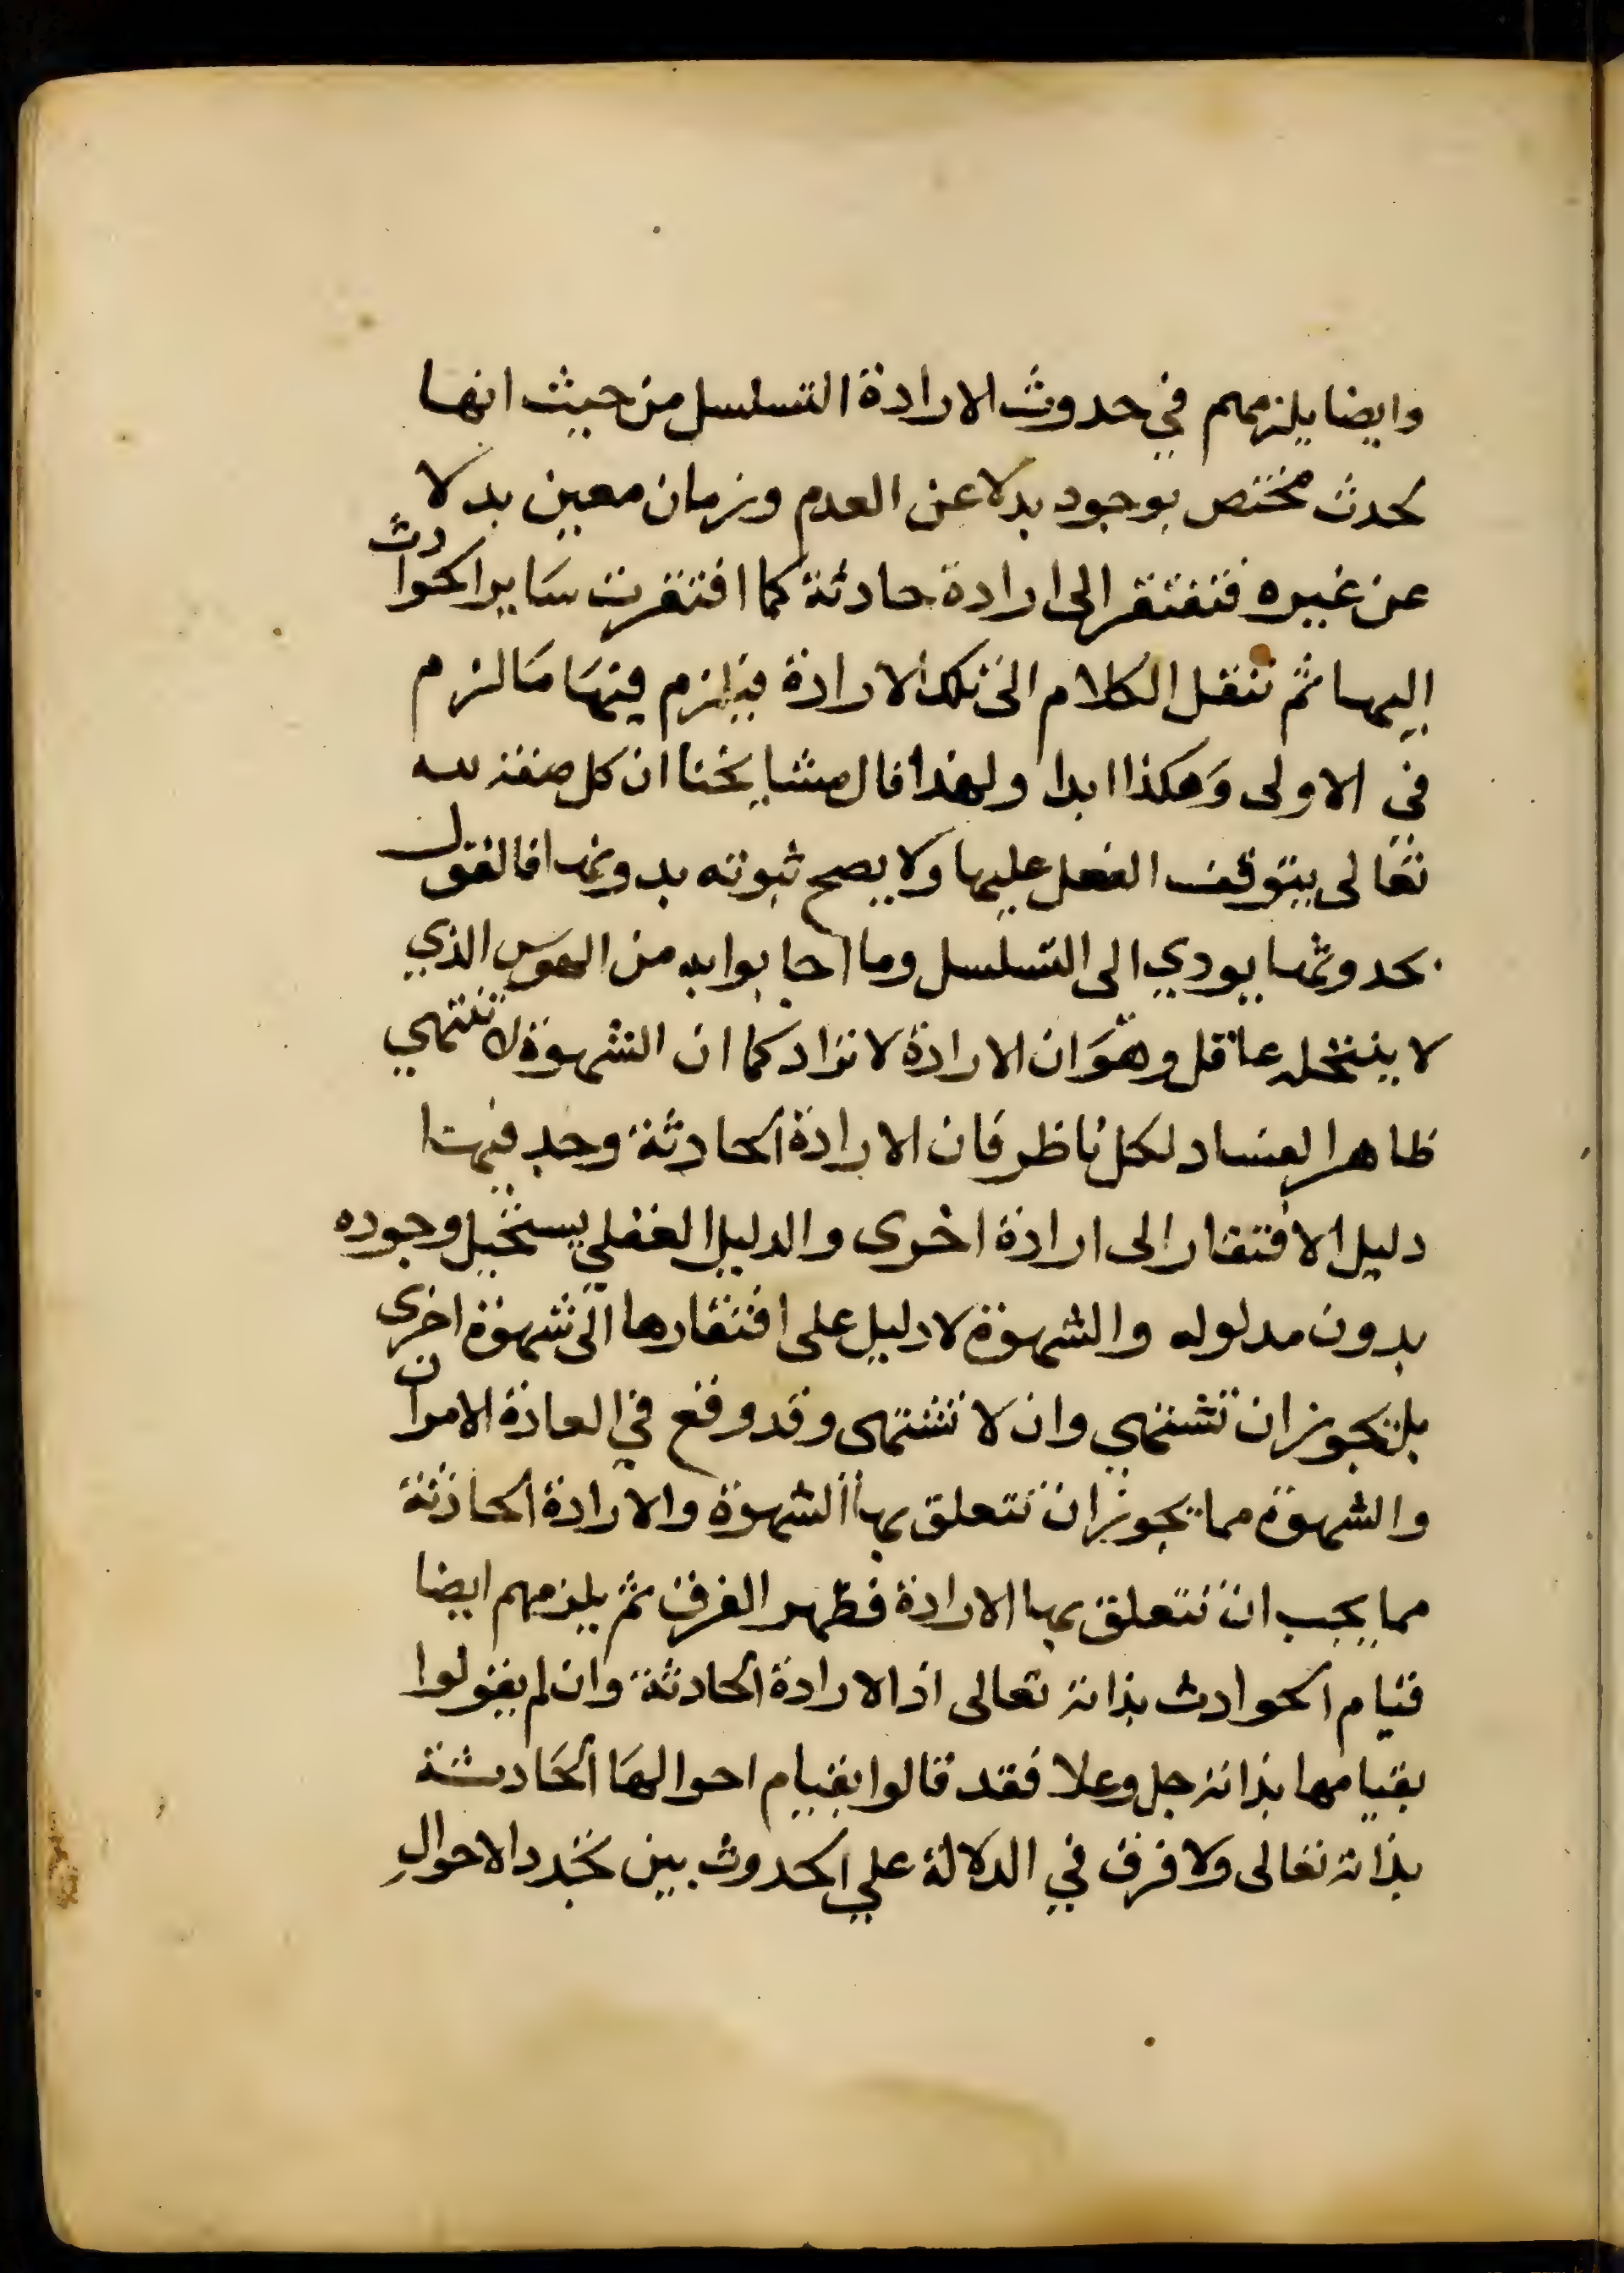 وايضا يلزمهم في حدوث الارادة التسلسل من حيث انها
تحدث مختص بوجود بدلا عن العدم وزمان معين بدلا
عن غيره فتفتقر الى ارادة حادثة كما افتقرت ساير الحوادث
اليها ثم ننقل الكلام الى تلك الارادة فيلزم فيها ما لزم
في الاولى وهكذا ابدا ولهذا قال مشايخنا ان كل صفة لله
تعالى يتوقف الفعل عليها ولا يصح ثبوته بدونها فالقول
بحدوثها يودي الى التسلسل وما اجابوا به من الهوس الذي
لا ينتحله عاقل وهو ان الارادة لا تراد كما ان الشهوة لا تشتهي
ظاهر الفساد لكل ناظر فان الارادة الحادثة وجد فيها
دليل الافتقار الى ارادة اخرى والدليل العقلي يستحيل وجوده
بدون مدلوله والشهوة لا دليل على افتقارها الى شهوة اخرى
بل يجوز ان تشتهي وان لا تشتهى وقد وقع في العادة الامران
والشهوة مما يجوز ان تتعلق بها الشهوة والارادة الحادثة
مما يجب ان تتعلق بها الارادة فظهر الفرق ثم يلزمهم ايضا
قيام الحوادث بذاته تعالى اذ الارادة الحادثة وان لم يقولوا
بقيامها بذاته جل وعلا فقد قالوا بقيام احوالها الحادثة
بذاته تعالى ولا فرق في الدلالة علي الحدوث بين تجدد الاحوال